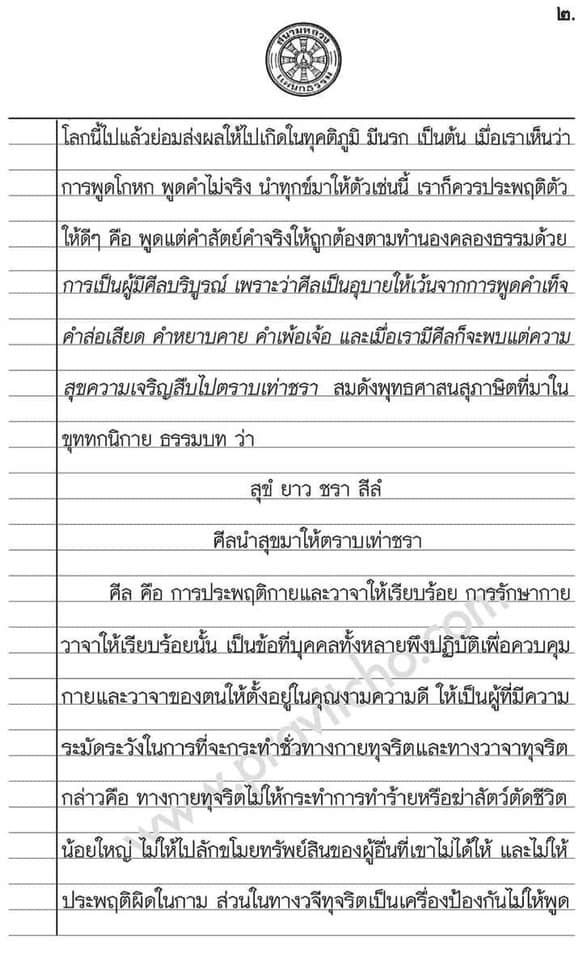 ๒.
สนามหลวง
แผนกธรรม
โลกนี้ไปแล้วย่อมส่งผลให้ไปเกิดในทุคติภูมิ มีนรก เป็นต้น เมื่อเราเห็นว่า
การพูดโกหก พูดคำไม่จริง นำทุกข์มาให้ตัวเช่นนี้ เราก็ควรประพฤติตัว
ให้ดีๆ คือ พูดแต่คำสัตย์คำจริงให้ถูกต้องตามทำนองคลองธรรมด้วย
การเป็นผู้มีศีลบริบูรณ์ เพราะว่าศีลเป็นอุบายให้เว้นจากการพูดคำเท็จ
คำส่อเสียด คำหยาบคาย คำเพ้อเจ้อ และเมื่อเรามีศีลก็จะพบแต่ความ
สุขความเจริญสืบไปตราบเท่าชรา สมดังพุทธศาสนสุภาษิตที่มาใน
ขุททกนิกาย ธรรมบท ว่า
สุขํ ยาว ชรา สีลํ
ศีลนำสุขมาให้ตราบเท่าชรา
ศีล คือ การประพฤติกายและวาจาให้เรียบร้อย การรักษากาย
วาจาให้เรียบร้อยนั้น เป็นข้อที่บุคคลทั้งหลายพึงปฏิบัติเพื่อควบคุม
กายและวาจาของตนให้ตั้งอยู่ในคุณงามความดี ให้เป็นผู้ที่มีความ
ระมัดระวังในการที่จะกระทำชั่วทางกายทุจริตและทางวาจาทุจริต
กล่าวคือ ทางกายทุจริตไม่ให้กระทำการทำร้ายหรือฆ่าสัตว์ตัดชีวิต
น้อยใหญ่ ไม่ให้ไปลักขโมยทรัพย์สินของผู้อื่นที่เขาไม่ได้ให้ และไม่ให้
ประพฤติผิดในกาม ส่วนในทางวจีทุจริตเป็นเครื่องป้องกันไม่ให้พูด
www.pravitcho.com